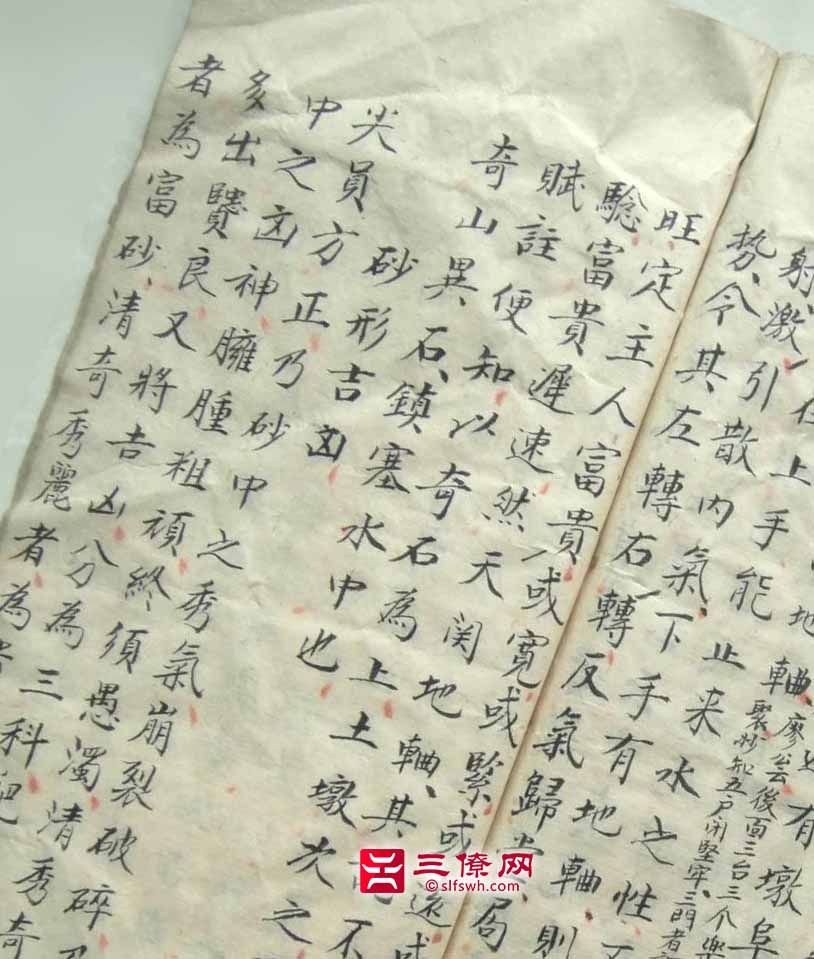 地軸
有墩阜
在上手能止来水之性
射激引散内氣下手有地軸則
勢令其左轉右轉反氣歸堂局
旺定主人富貴或寬或緊或遠或
驗富貴遲速然天関地軸其不
賦註便知以奇石為上土墩次之
奇山異石鎮塞水中也
砂形吉凶
尖員方正乃砂中之秀氣崩裂破碎乃
中之凶神臃腫粗頑終須愚濁清秀奇
多出賢良又將吉凶分為三科肥
者為富砂清奇秀麗者為
三僚网
©slfswh.com